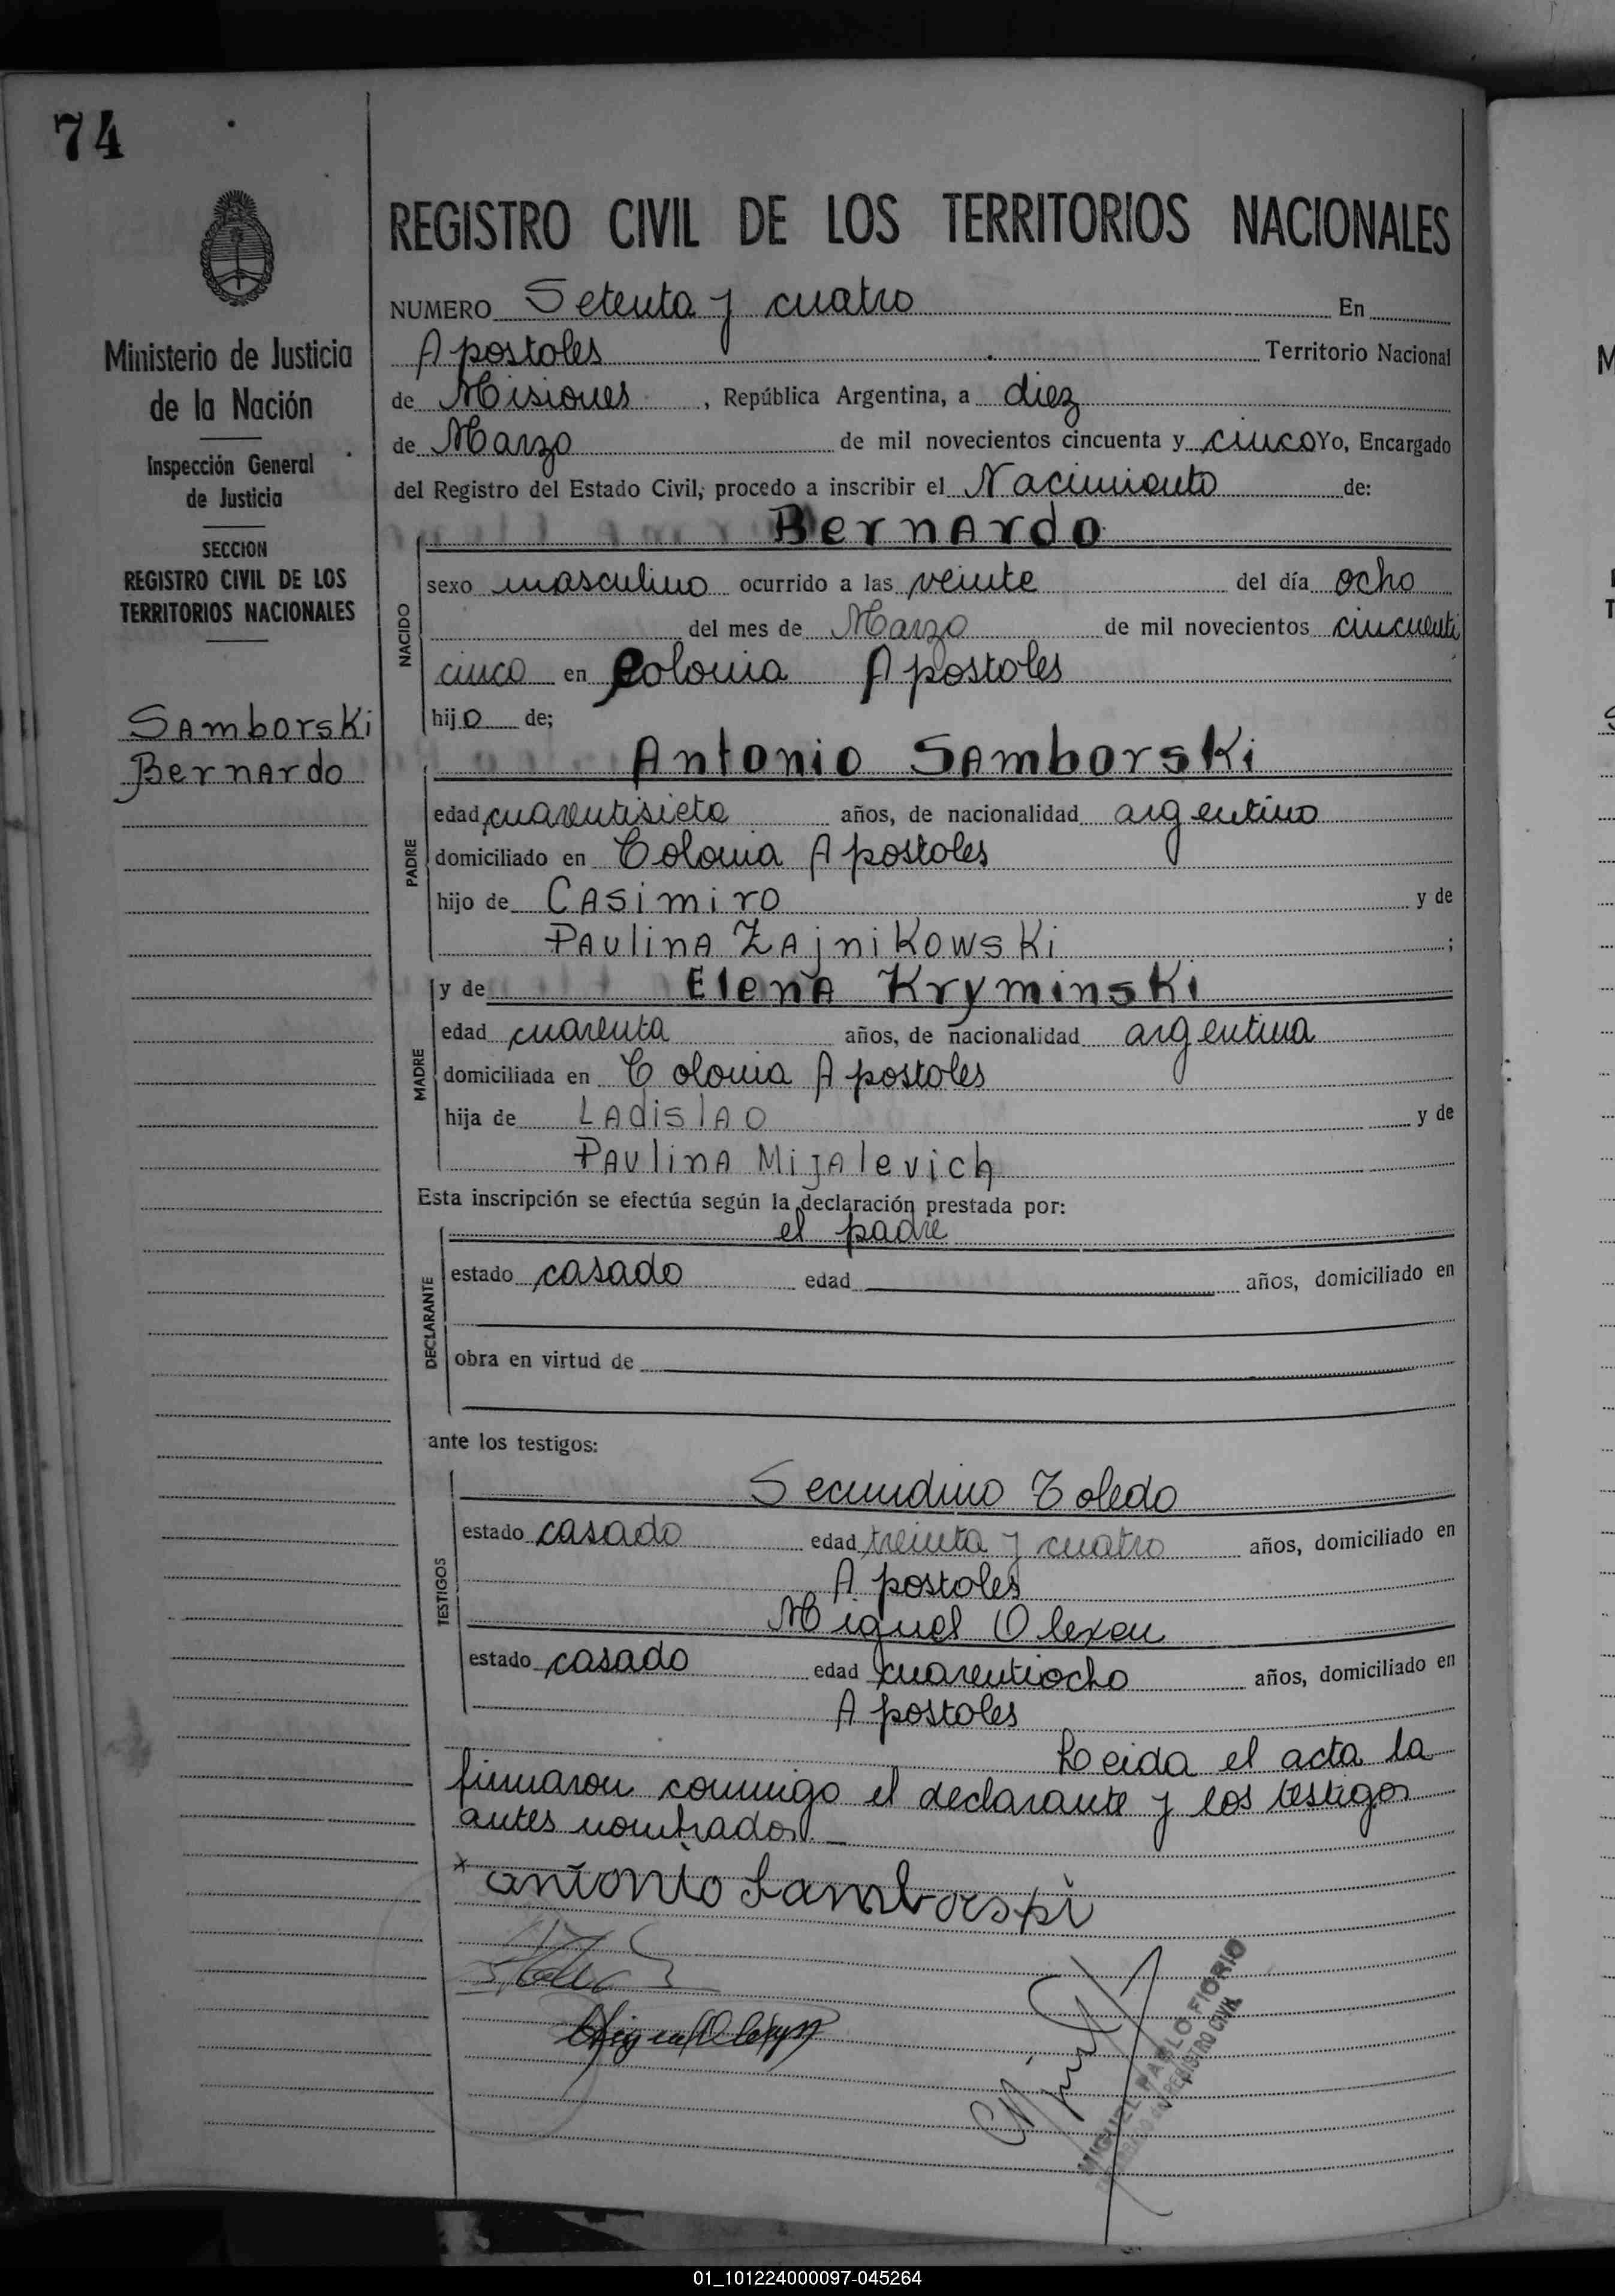 74
Ministerio de Justicia
de la Nación
Inspección General
de Justicia
SECCION
REGISTRO CIVIL DE LOS
TERRITORIOS NACIONALES
Samborski
Bernardo
REGISTRO CIVIL DE LOS TERRITORIOS NACIONALES
NUMERO Setenta y cuatro En
Apostoles Territorio Nacional
de Misiones, República Argentina, a diez
de Marzo de mil novecientos cincuenta y cinco Yo, Encargado
del Registro del Estado Civil, procedo a inscribir el Nacimiento de:
Bernardo
NACIDO
sexo masculino ocurrido a las veinte del día ocho
del mes de Marzo de mil novecientos cincuenti
cinco en Colonia Apostoles
hijo de;
Antonio Samborski
PADRE
edad cuarentisiete años, de nacionalidad argentino
domiciliado en Colonia Apostoles
hijo de Casimiro y de
Paulina Zajnikowski ;
y de Elena Kryminski
MADRE
edad cuarenta años, de nacionalidad argentina
domiciliada en Colonia Apostoles
hija de Ladislao y de
Paulina Mijalevich
Esta inscripción se efectúa según la declaración prestada por:
el padre
DECLARANTE
estado casado edad años, domiciliado en
obra en virtud de
ante los testigos:
Secundino Toledo
TESTIGOS
estado casado edad treinta y cuatro años, domiciliado en
Apostoles
Miguel Olexen
estado casado edad cuarentiocho años, domiciliado en
Apostoles
Leida el acta la
firmaron conmigo el declarante y los testigos
antes nombrados.
x antonio Samborski
MIGUEL PABLO FIORIO
REGISTRO CIVIL
01_101224000097-045264